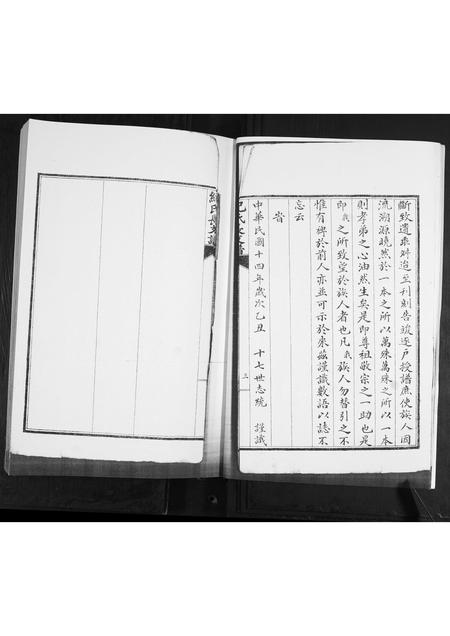 斷致遺乘舛迨至刊刷告竣逐戶授譜庶使族人因
流溯源曉然於一本之所以萬殊萬殊之所以一本
則孝弟之心油然生矣是即尊祖敬宗之一助也是
即我之所致望於族人者也凡我族人勿替引之不
惟有裨於前人亦並可示於來茲謹識數語以誌不
忘云
旹
中華民國十四年歲次乙丑 十七世志統 謹識
三
氏支譜